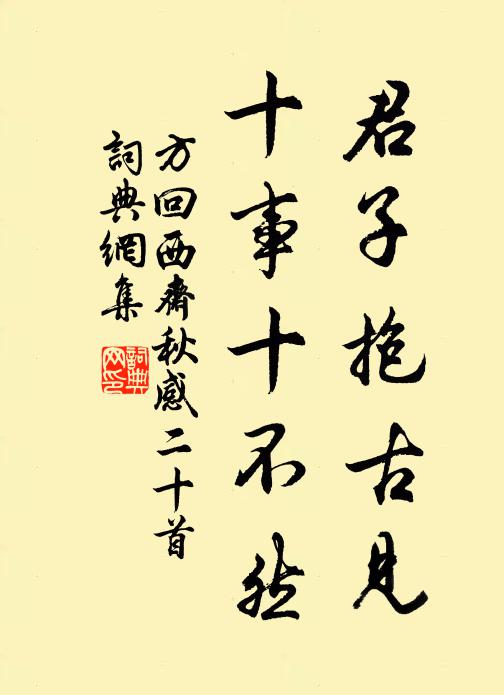 君子抱古見
十事十不然
方回西齋秋感二十首
詞典網集
詞典網印